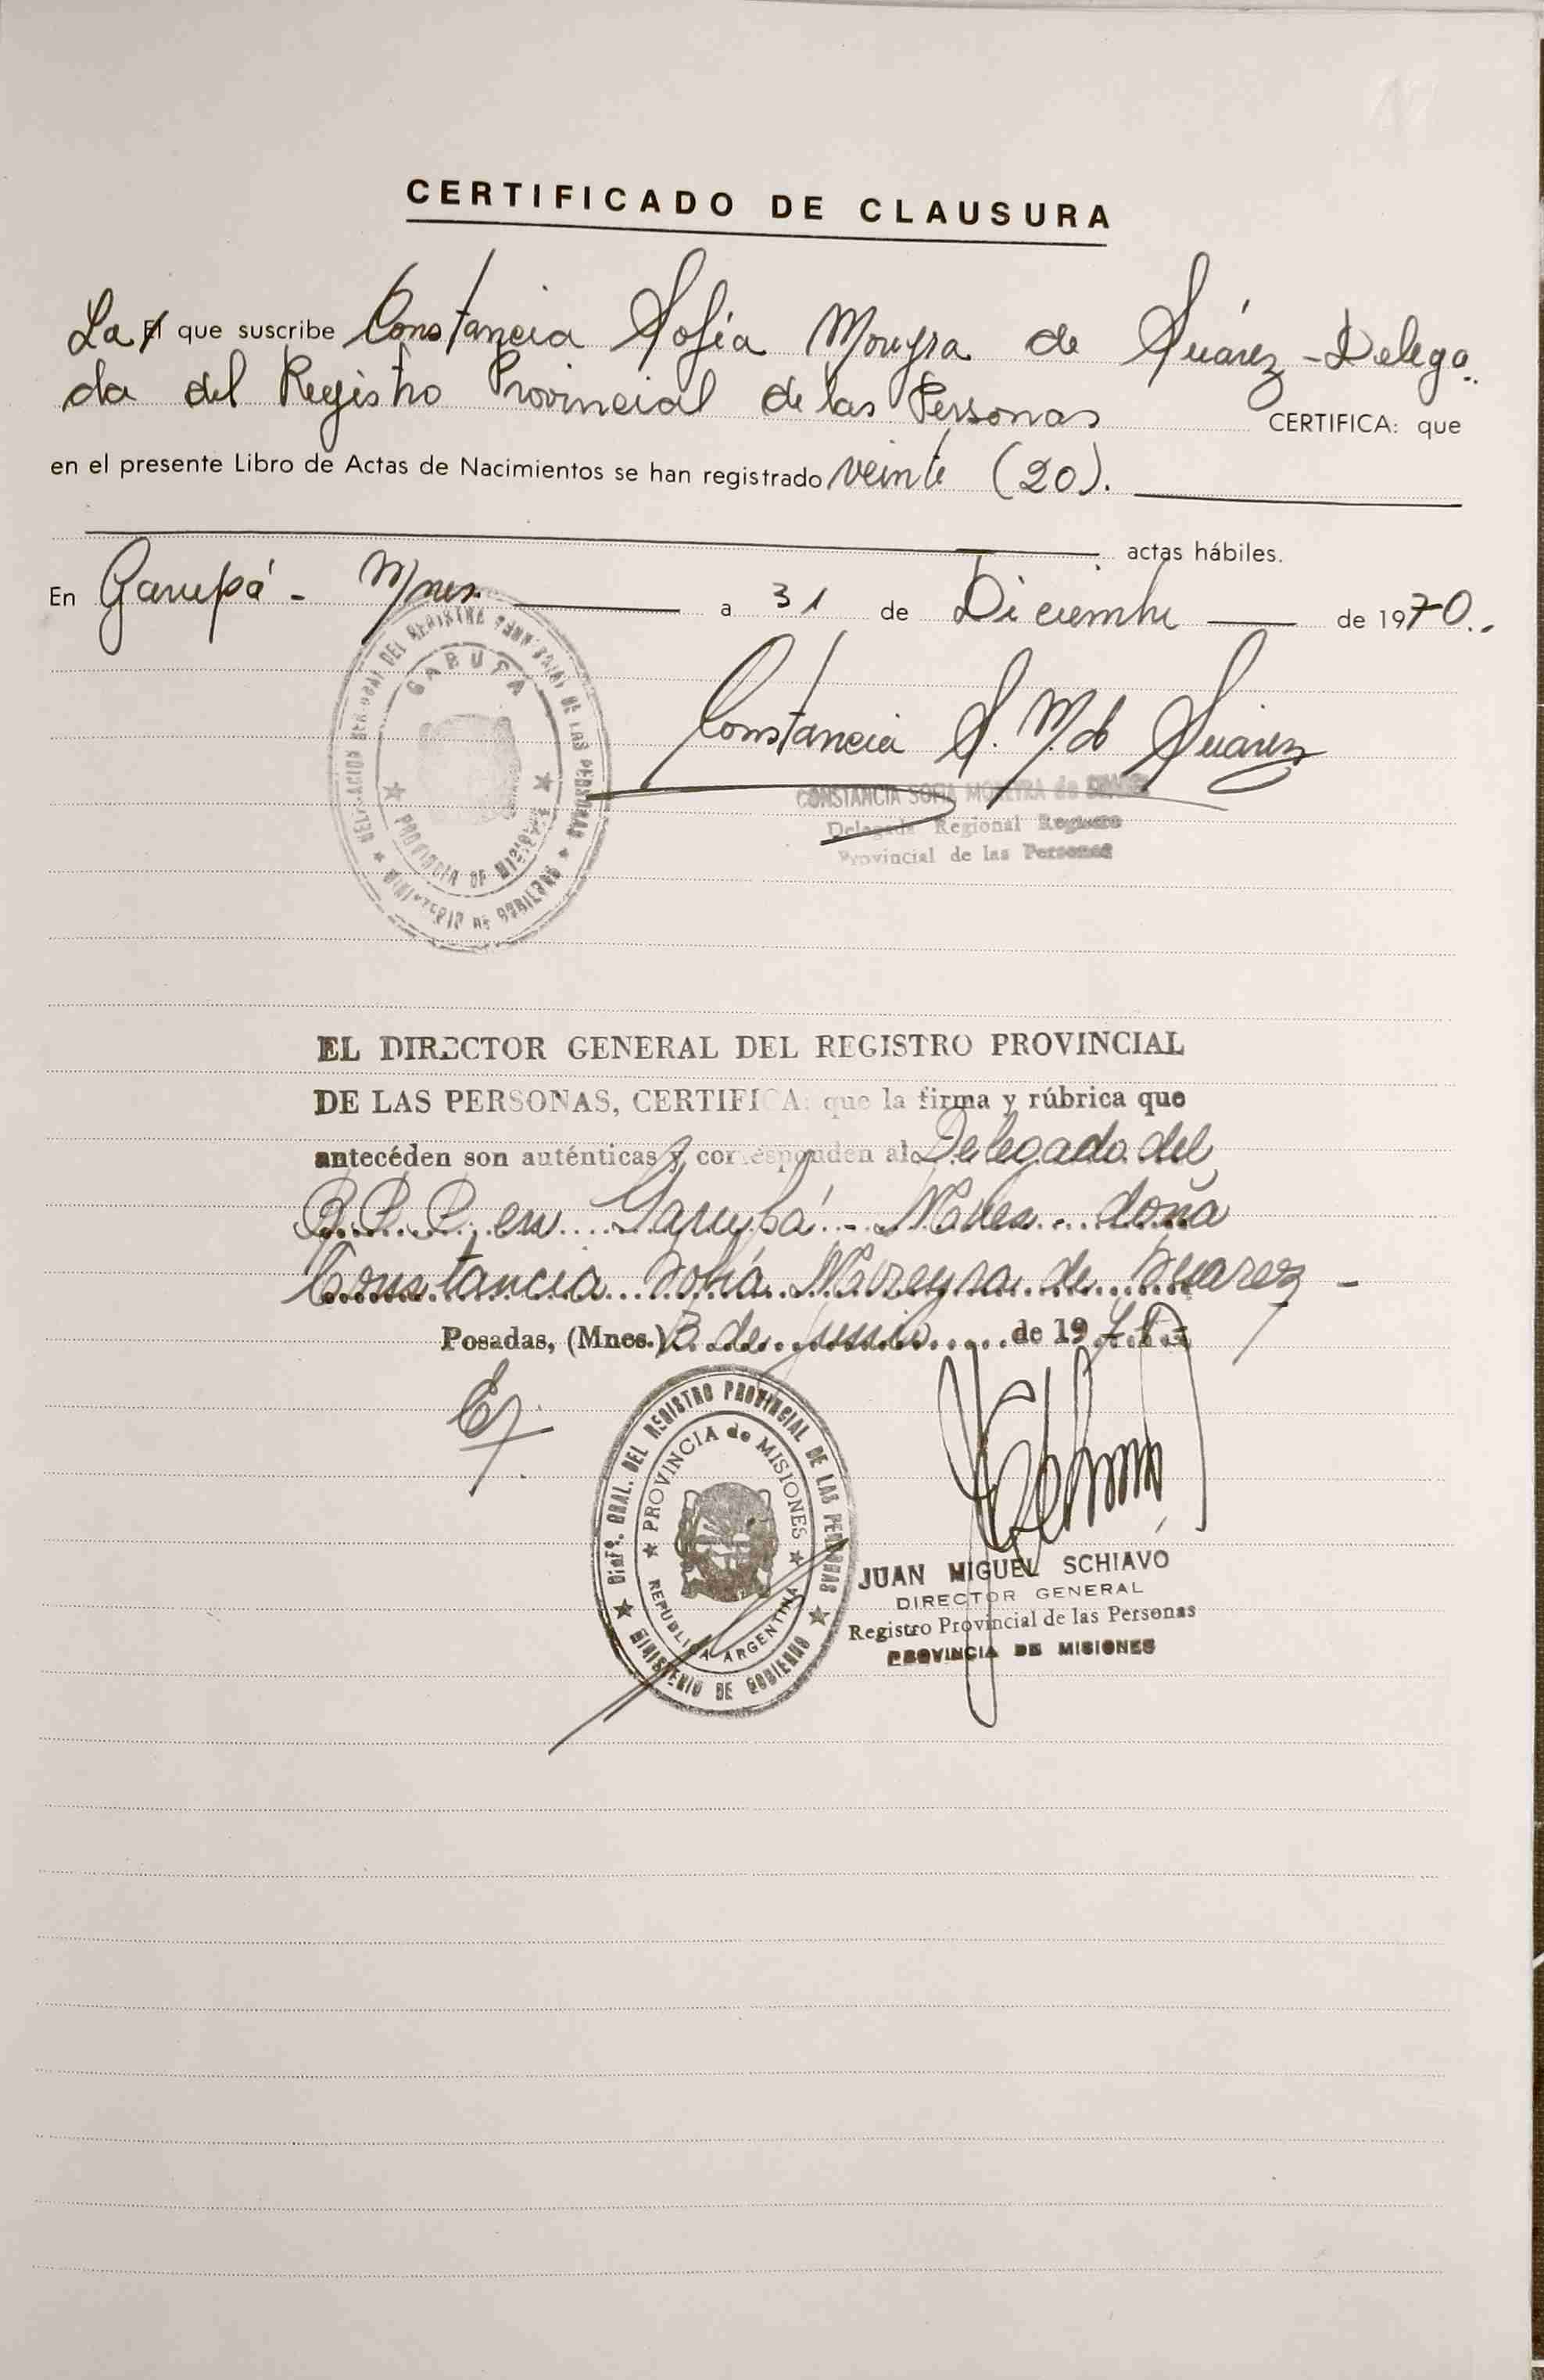 CERTIFICADO DE CLAUSURA
La El que suscribe Constancia Sofía Moreyra de Suárez - Delega
da del Registro Provincial de las Personas CERTIFICA: que
en el presente Libro de Actas de Nacimientos se han registrado veinte (20).
actas hábiles.
En Garupá - Mnes. a 31 de Diciembre de 1970..
DELEGACION REGIONAL DEL REGISTRO PROVINCIAL DE LAS PERSONAS
GARUPA
PROVINCIA DE MISIONES
MINISTERIO DE GOBIERNO
Constancia S. M. de Suárez
CONSTANCIA SOFIA MOREYRA de SUAREZ
Delegada Regional Registro
Provincial de las Personas
EL DIRECTOR GENERAL DEL REGISTRO PROVINCIAL
DE LAS PERSONAS, CERTIFICA: que la firma y rúbrica que
antecéden son auténticas y corresponden al Delegado del
R.P.P. en Garupá - Mnes. doña
Constancia Sofía Moreyra de Suarez -
Posadas, (Mnes.) de de 19
DIREC. GRAL. DEL REGISTRO PROVINCIAL DE LAS PERSONAS
PROVINCIA de MISIONES
REPUBLICA ARGENTINA
MINISTERIO DE GOBIERNO
JUAN MIGUEL SCHIAVO
DIRECTOR GENERAL
Registro Provincial de las Personas
PROVINCIA DE MISIONES